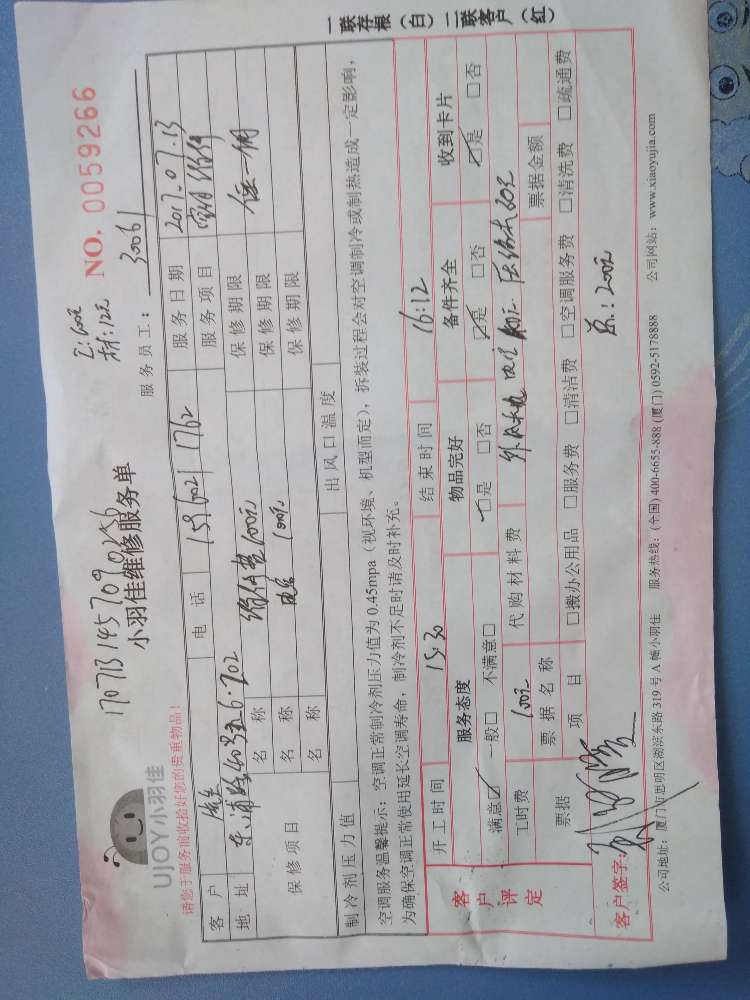 一联存根（白）二联客户（红）
1707131457090256
UJOY小羽佳
小羽佳维修服务单
NO. 0059266
工:600元
材:12元
请您于服务前收拾好您的贵重物品！
服务员工： 30061
客户 电话 服务日期 2017.07.13
地址 702 服务项目 空调
保修项目 名称 100元 保修期限 保一个月
名称 100元 保修期限
名称 保修期限
制冷剂压力值 出风口温度
空调服务温馨提示：空调正常制冷剂压力值为 0.45mpa（视环境、机型而定），拆装过程会对空调制冷或制热造成一定影响，
为确保空调正常使用延长空调寿命，制冷剂不足时请及时补充。
客户评定 开工时间 15:30 结束时间 16:12
服务态度 物品完好 备件齐全 收到卡片
满意☑ 一般□ 不满意□ ☑是 □否 ☑是 □否 ☑是 □否
工时费 100元 代购材料费
票据 票据名称 票据金额
项目 □搬办公用品 □服务费 □清洁费 □空调服务费 □清洗费 □疏通费
客户签字： 200元
公司地址：厦门市思明区湖滨东路 319 号 A 幢小羽佳 服务热线：(全国) 400-6655-888 (厦门) 0592-5178888 公司网站：www.xiaoyujia.com